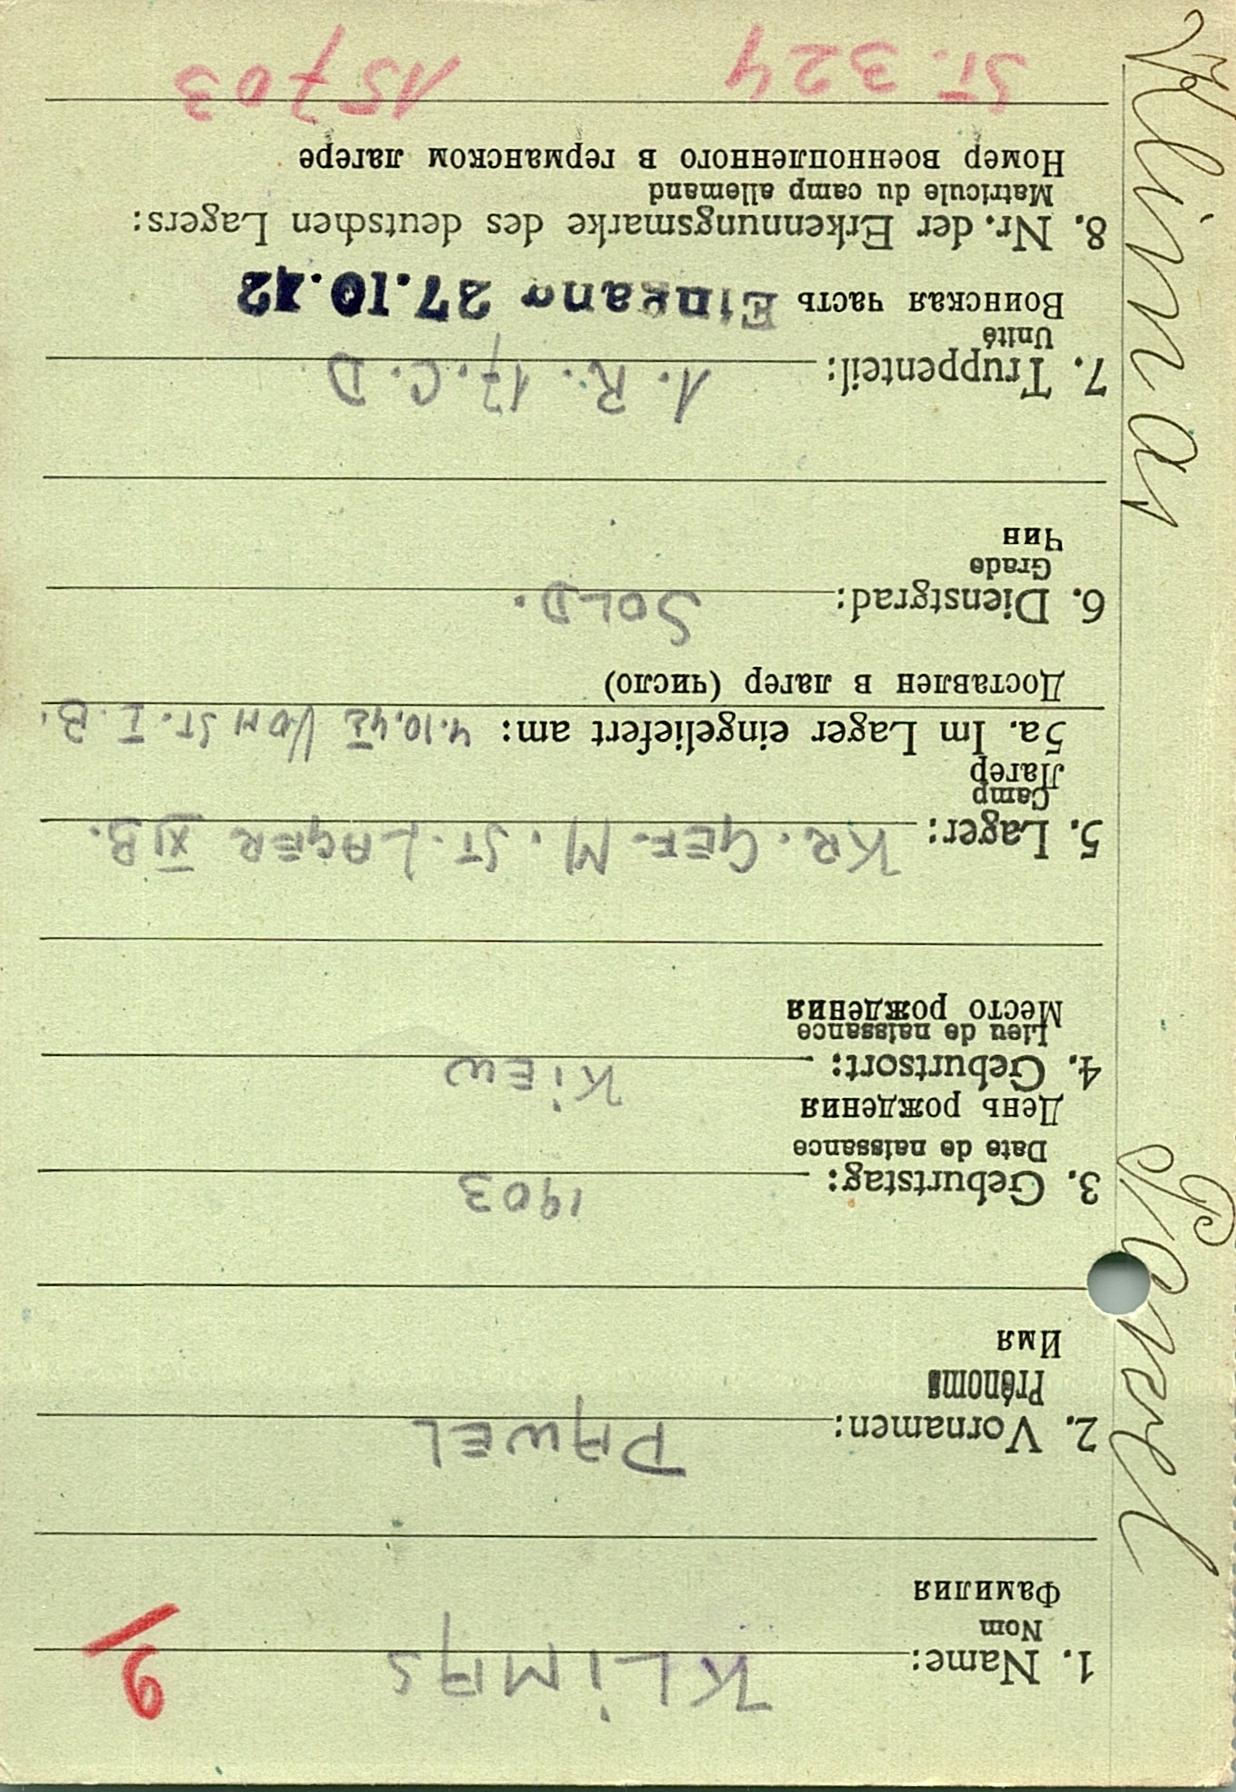 1. Name: KLIMAS
Nom
Фамилия
2. Vornamen: PAWEL
Prénoms
Имя
3. Geburtstag: 1903
Date de naissance
День рождения
4. Geburtsort: KIEW
Lieu de naissance
Место рождения
5. Lager: KR. GEF. M. ST. LAGER XI B.
Camp
Лагерь
5a. Im Lager eingeliefert am: 4.10.42 VOM ST. I. B.
Доставлен в лагер (число)
6. Dienstgrad: SOLD.
Grade
Чин
7. Truppenteil: 1. R. 17. C. D
Unité
Воинская часть Eingang 27.10.42
8. Nr. der Erkennungsmarke des deutschen Lagers:
Matricule du camp allemand
Номер военнопленного в германском лагере
ST. 324 15703
Klimas Pawel